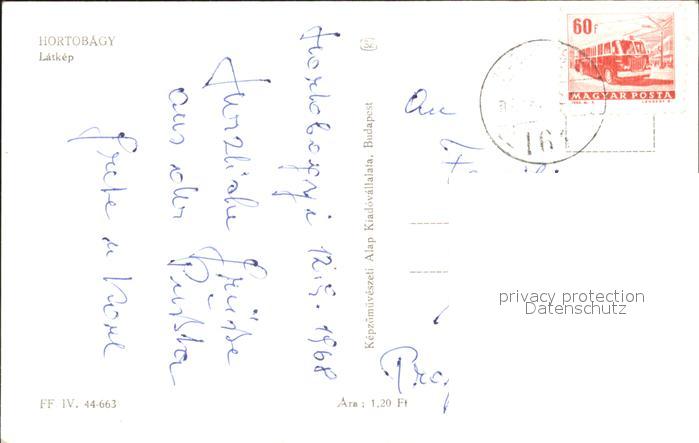 HORTOBÁGY
Látkép
Hortobagyi 12.9.1968
Herzliche Grüsse
aus der Pussta
Grete u Karl
FF IV. 44-663
Képzőművészeti Alap Kiadóvállalata, Budapest
Ára: 1,20 Ft
60f
MAGYAR POSTA
161
An
privacy protection
Datenschutz